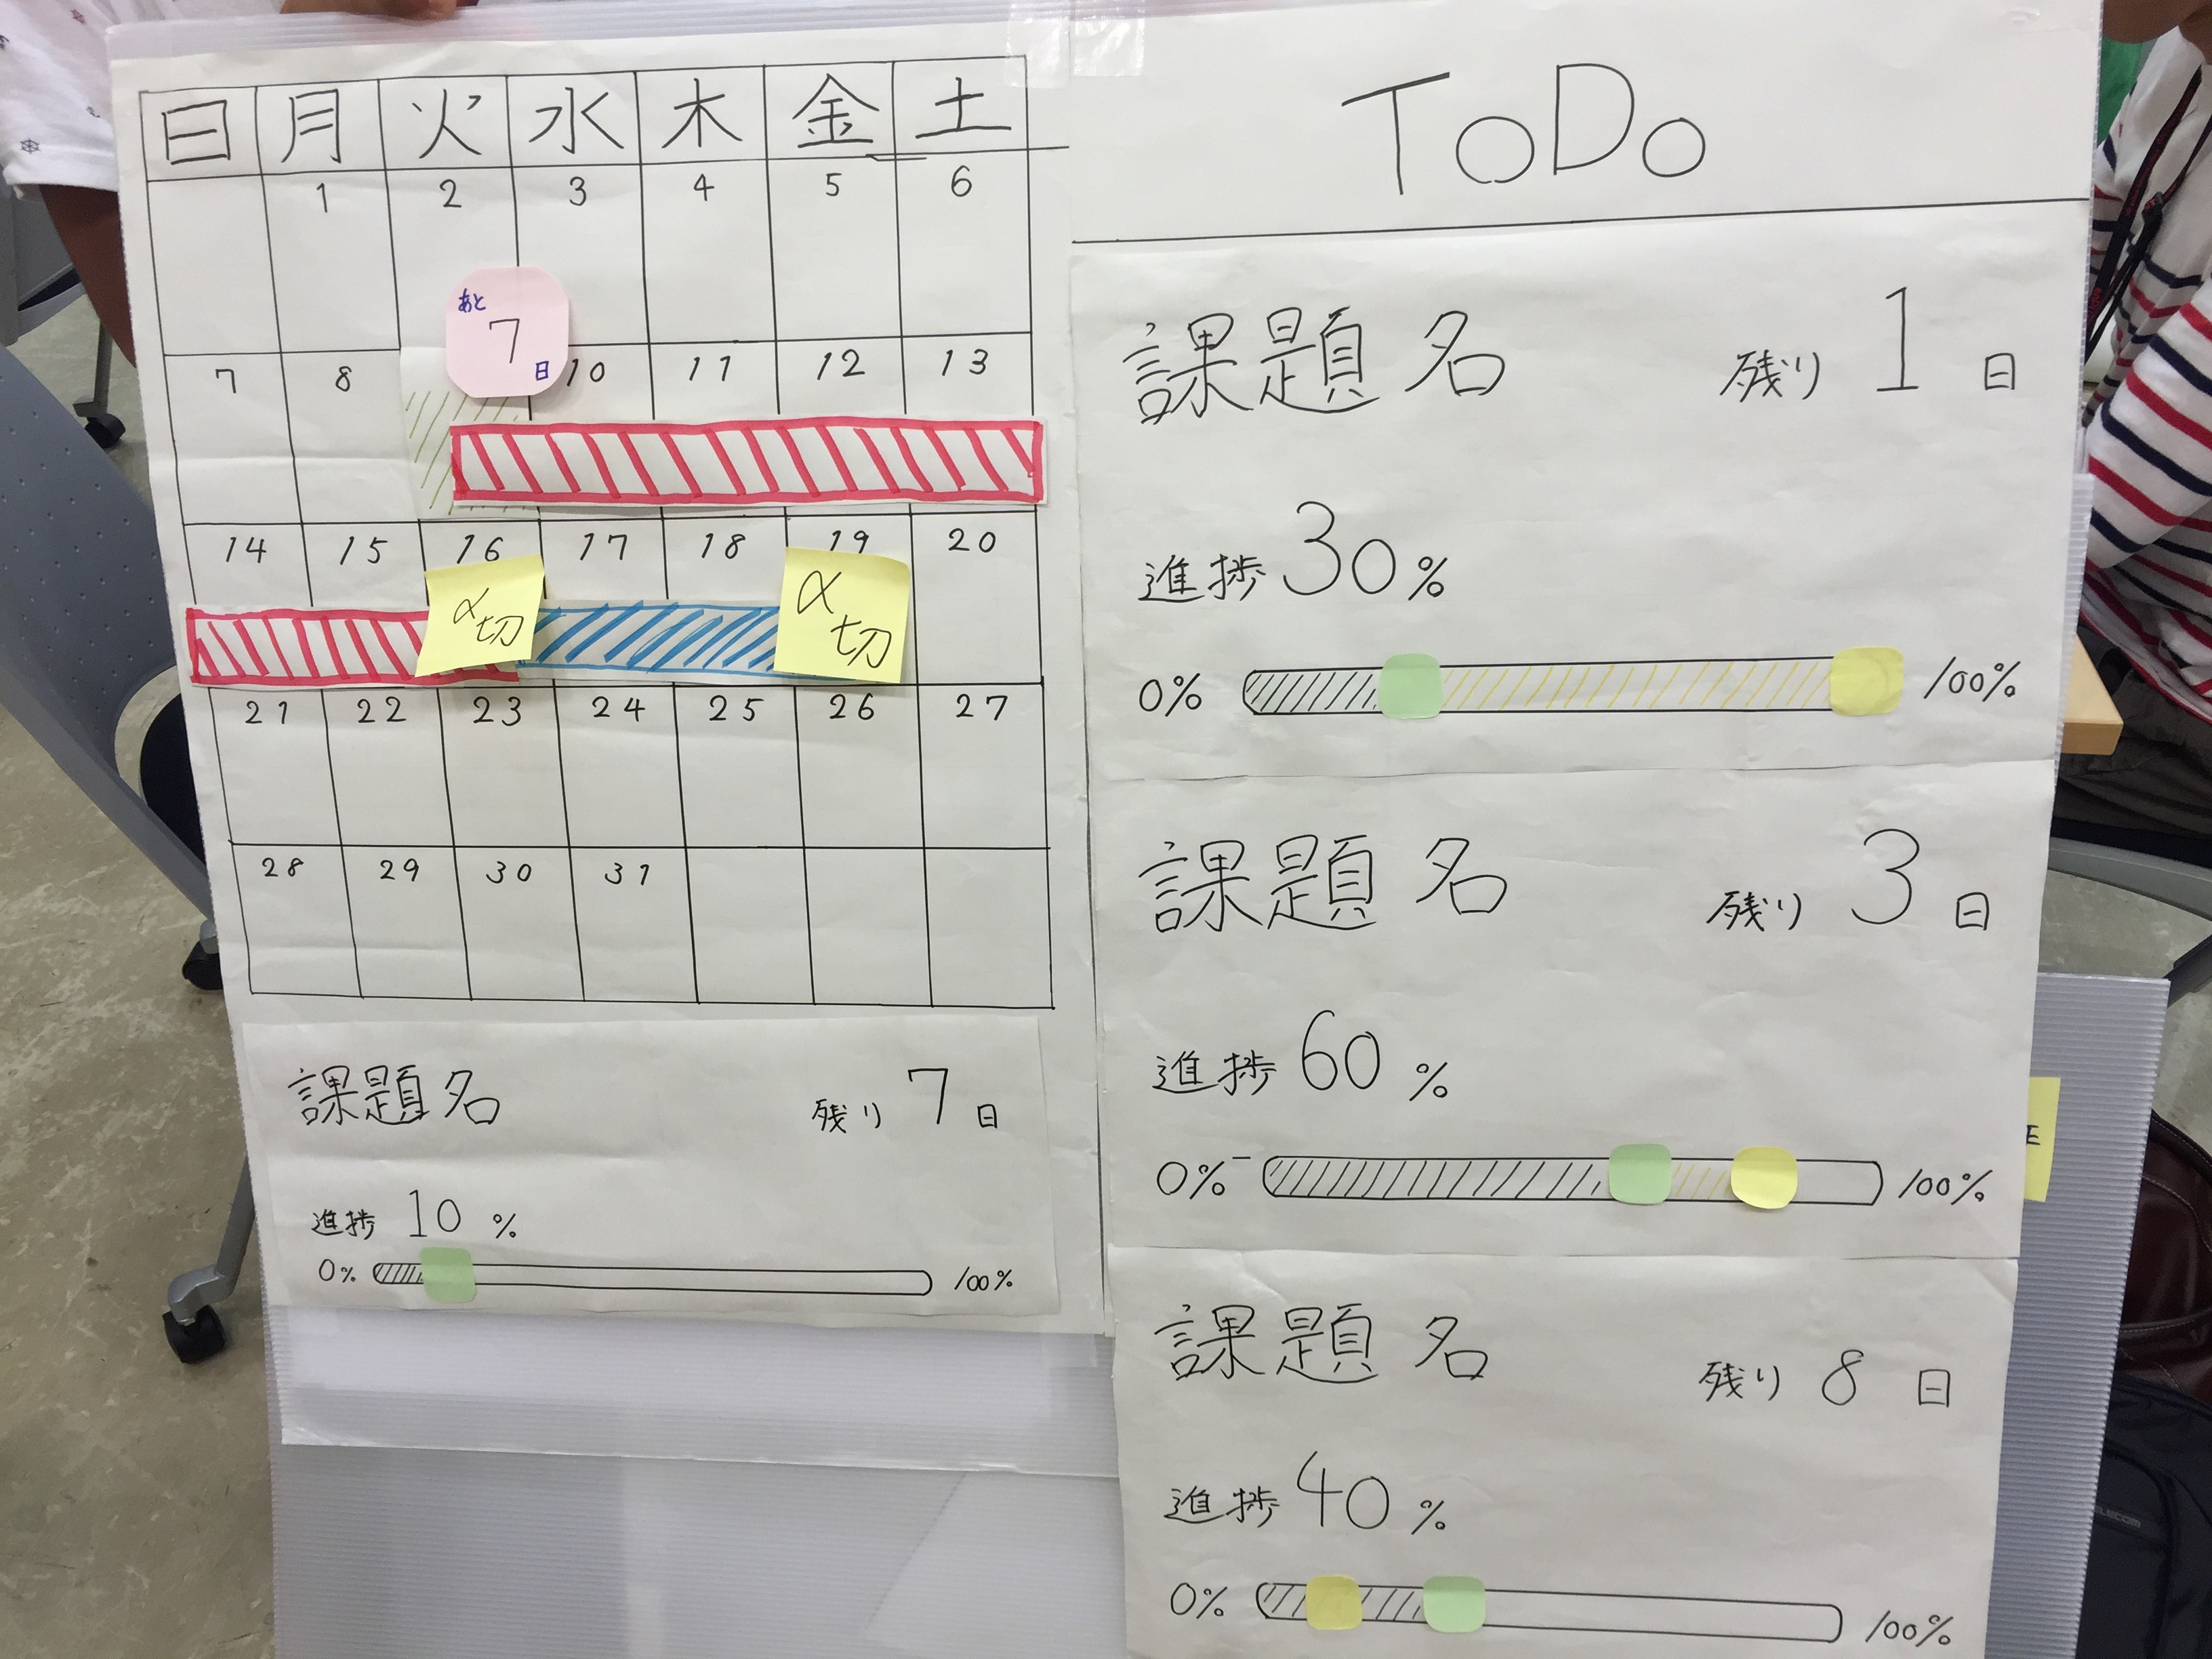 日 月 火 水 木 金 土
1 2 3 4 5 6
あと
7
日
7 8 10 11 12 13
14 15 16 17 18 19 20
〆切
〆切
21 22 23 24 25 26 27
28 29 30 31
課題名 残り 7 日
進捗 10 %
0% 100%
ToDo
課題名 残り 1 日
進捗 30 %
0% 100%
課題名 残り 3 日
進捗 60 %
0% 100%
課題名 残り 8 日
進捗 40 %
0% 100%